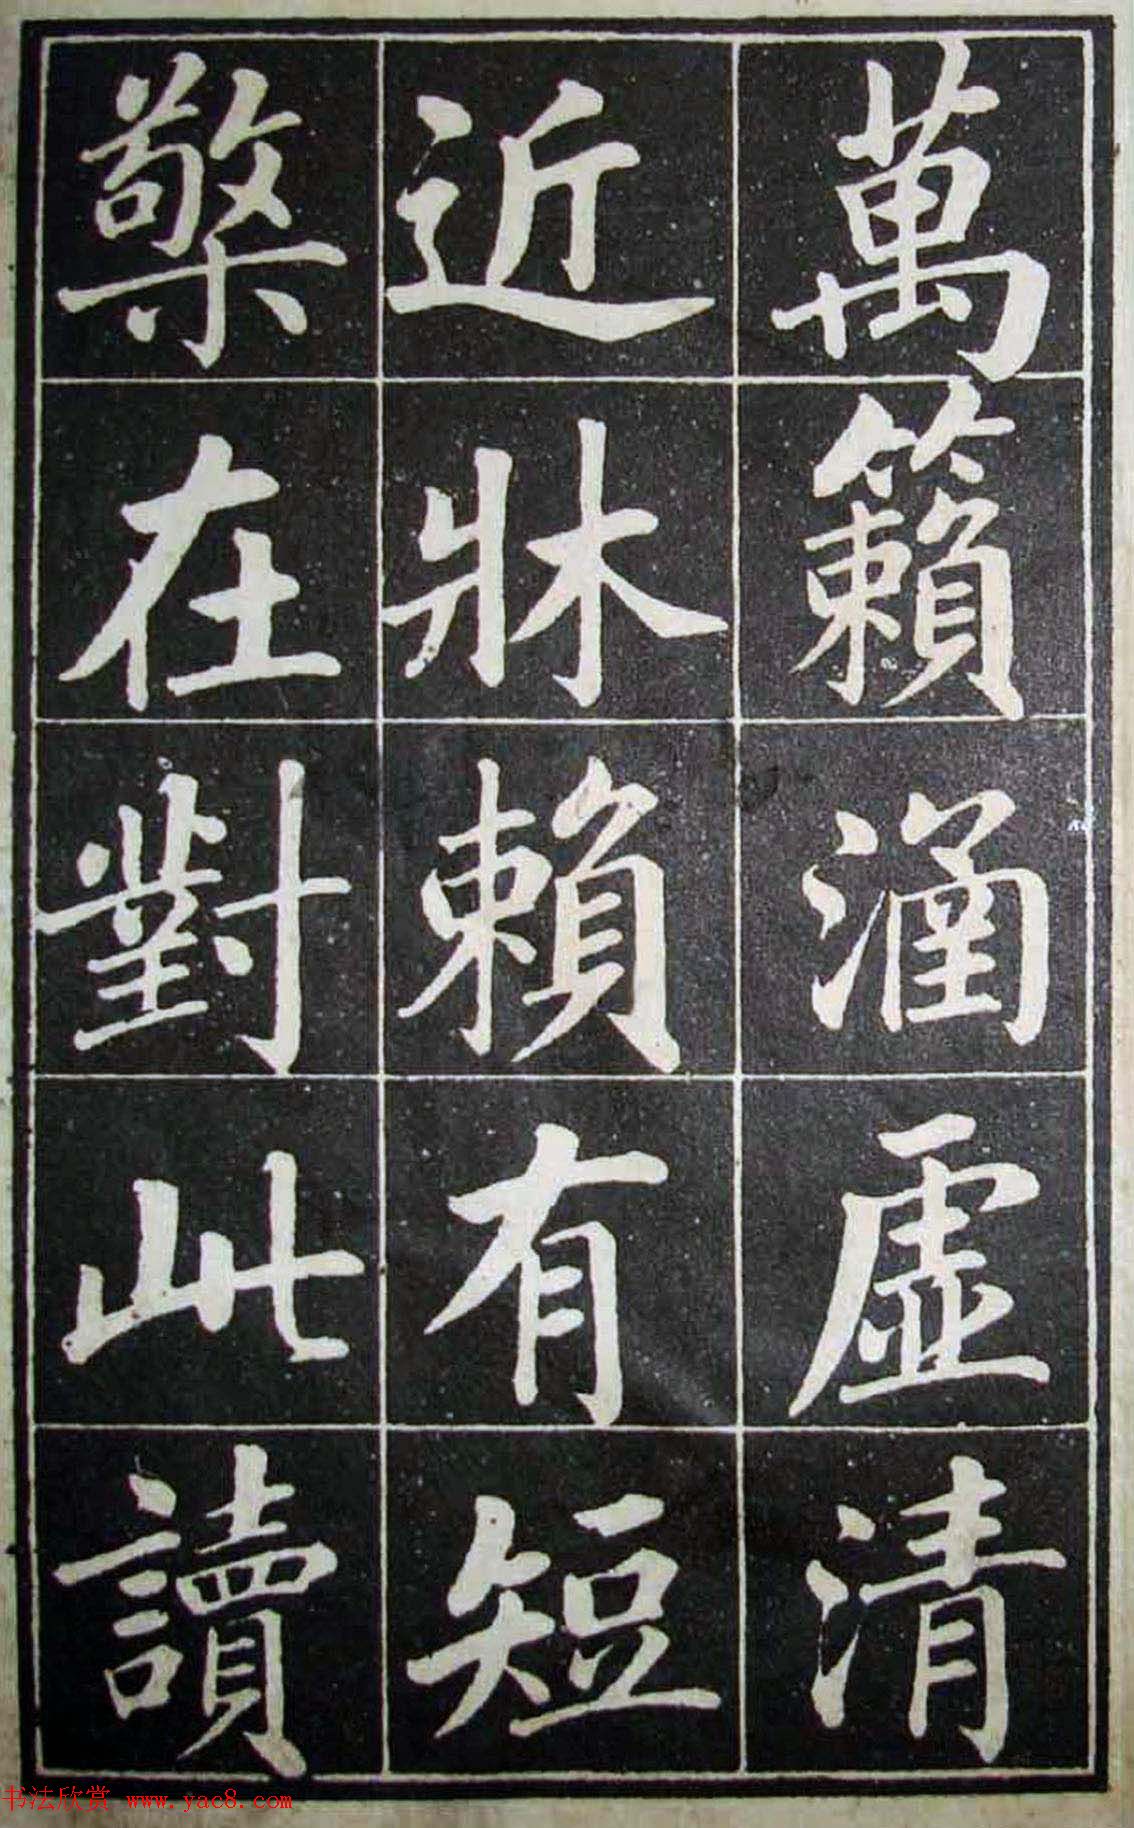 萬籟涵虛清
近牀賴有短
檠在對此讀
书法欣赏 www.yac8.com